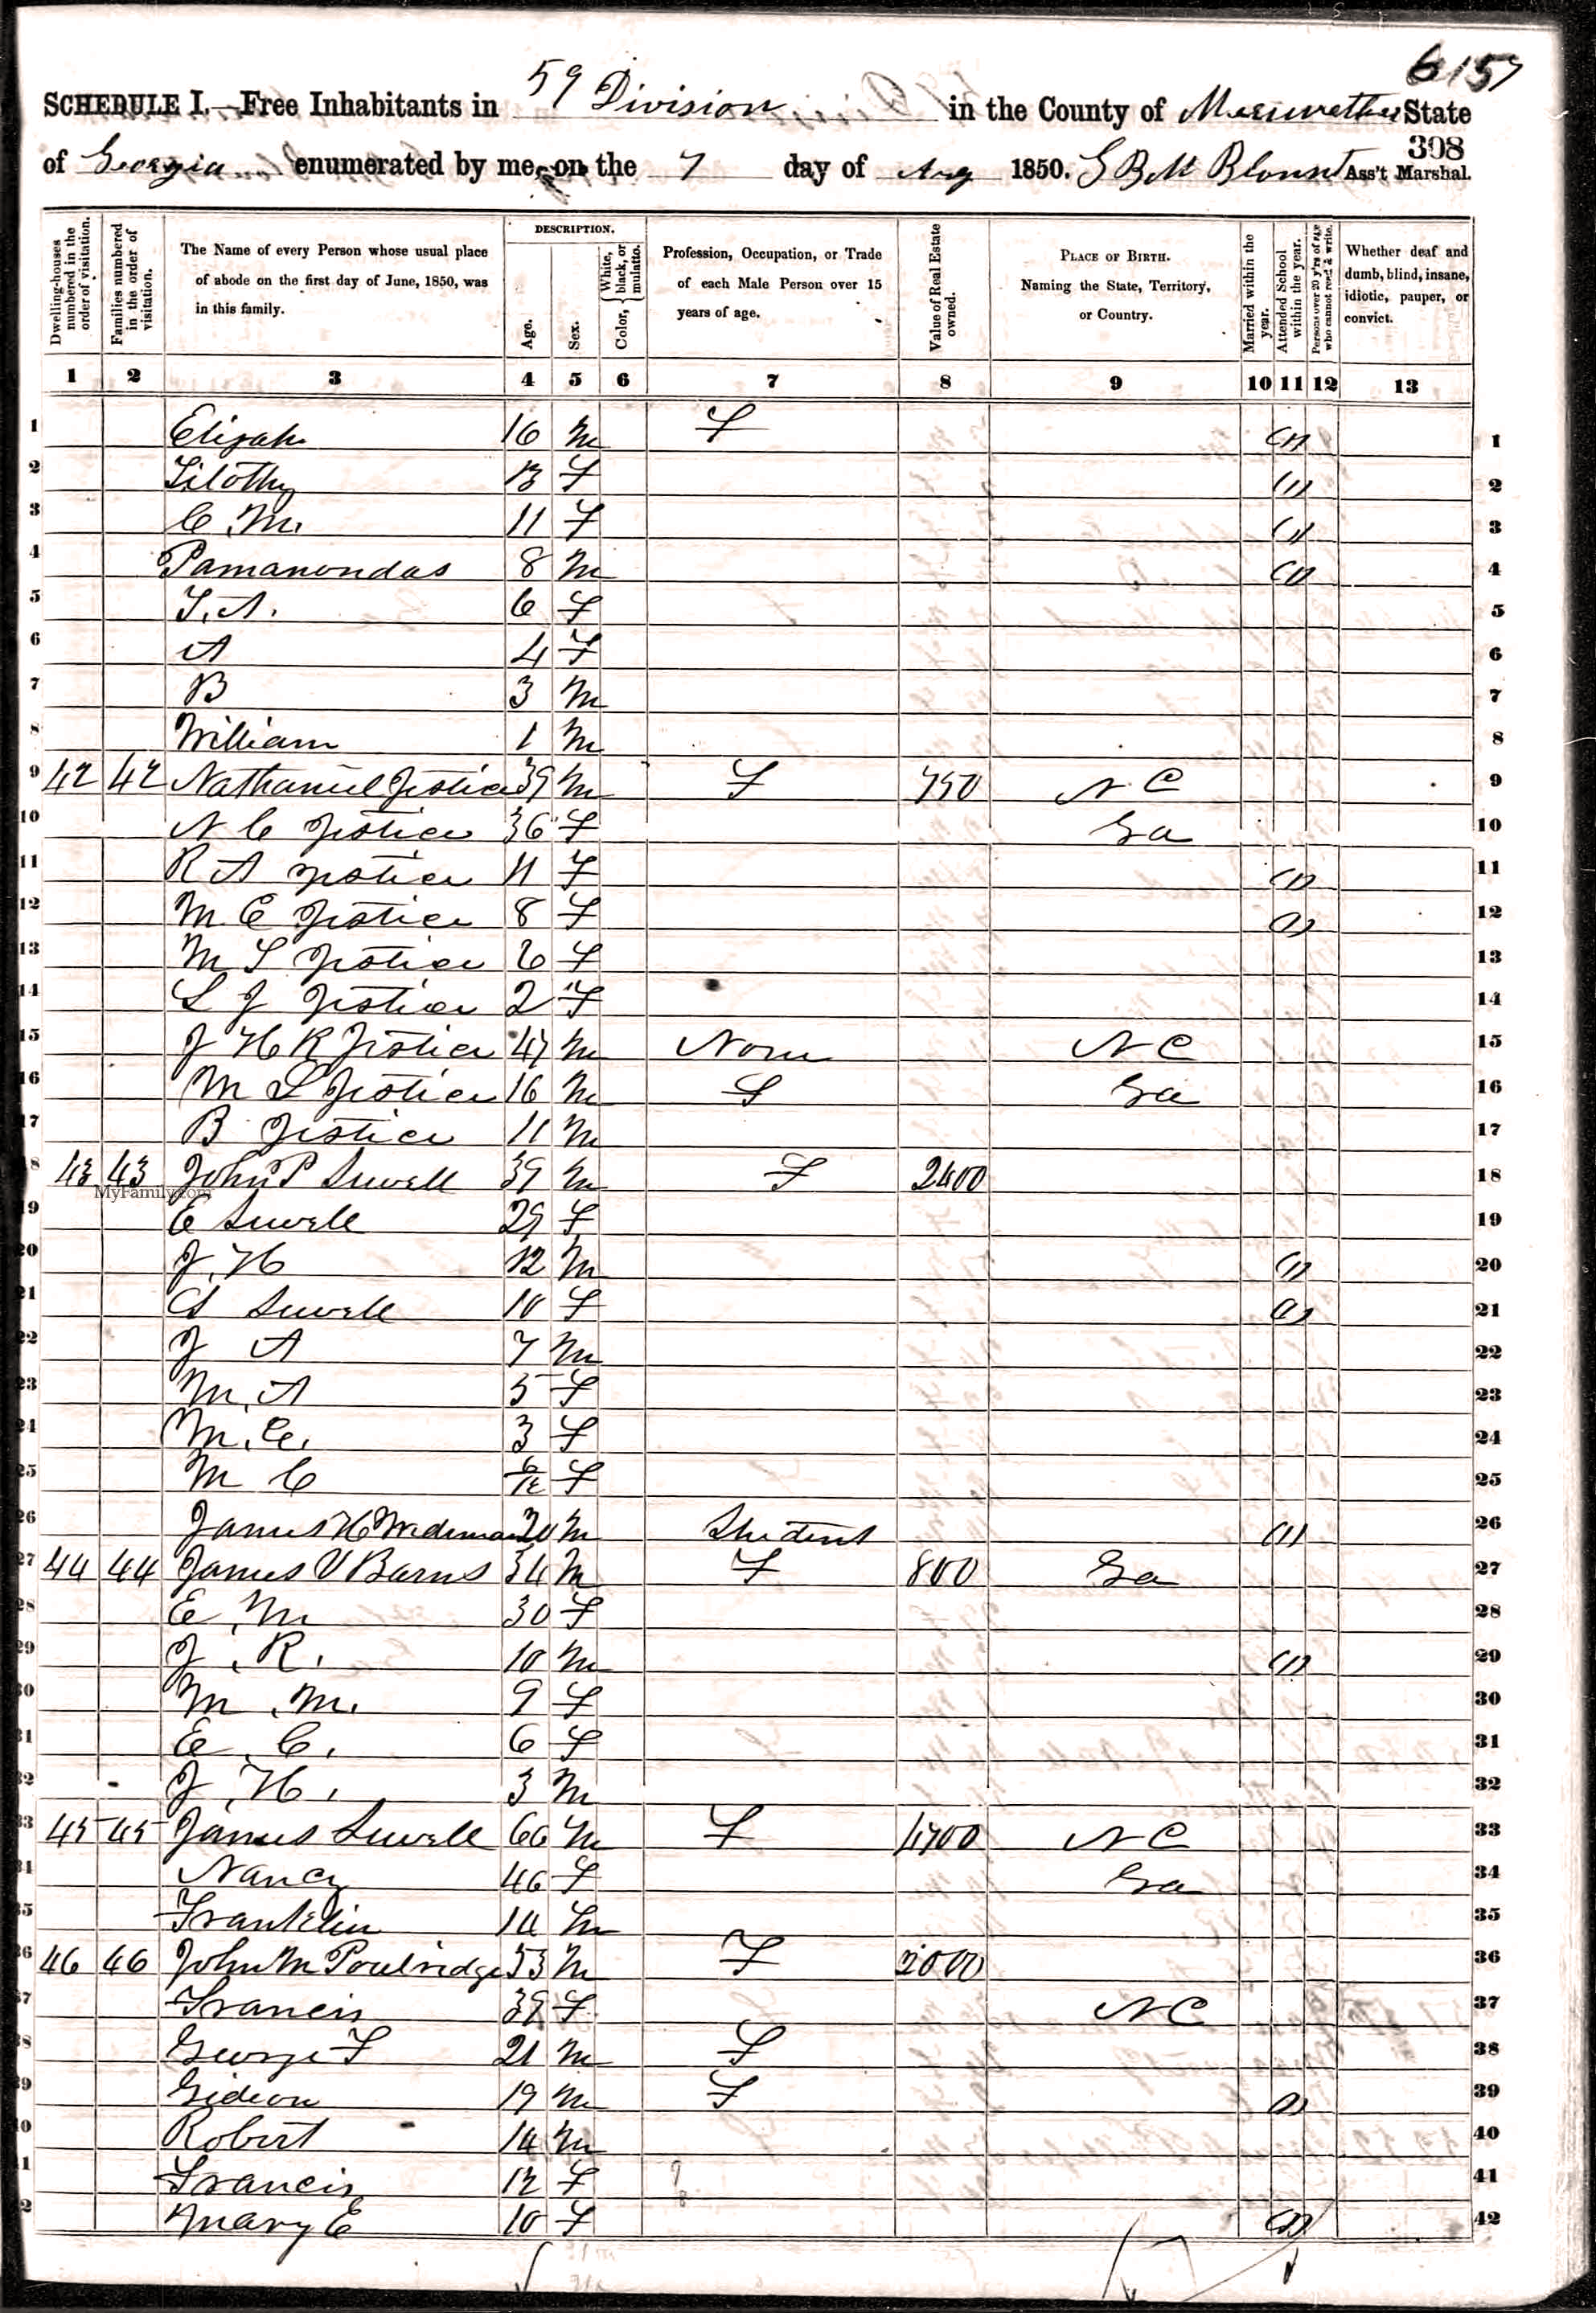 615
SCHEDULE I.—Free Inhabitants in 59 Division in the County of Meriwether State
308
of Georgia enumerated by me, on the 7 day of Aug 1850. Blount Ass't Marshal.
Dwelling-houses numbered in the order of visitation.
Families numbered in the order of visitation.
The Name of every Person whose usual place of abode on the first day of June, 1850, was in this family.
DESCRIPTION.
Age.
Sex.
Color, { White, black, or mulatto.
Profession, Occupation, or Trade of each Male Person over 15 years of age.
Value of Real Estate owned.
PLACE OF BIRTH. Naming the State, Territory, or Country.
Married within the year.
Attended School within the year.
Persons over 20 y'rs of age who cannot read & write.
Whether deaf and dumb, blind, insane, idiotic, pauper, or convict.
1 2 3 4 5 6 7 8 9 10 11 12 13
1 Elijah 16 M F (1) 1
2 13 F (1) 2
3 C. M. 11 F (1) 3
4 Pamanondas 8 M (1) 4
5 T. A. 6 F 5
6 A 4 F 6
7 B 3 M 7
8 William 1 M 8
9 42 42 Nathaniel Jestice 39 M F 750 N C 9
10 N C Jestice 36 F Ga 10
11 R A Jestice 11 F (1) 11
12 M E Jestice 8 F (1) 12
13 M S Jestice 6 F 13
14 S J Jestice 2 F 14
15 J H R Jestice 47 M None N C 15
16 M L Jestice 16 M F Ga 16
17 B Jestice 11 M 17
18 43 43 John P Sewell 39 M F 2400 18
MyFamily.com
19 E Sewell 29 F 19
20 J. H 12 M (1) 20
21 Sewell 10 F (1) 21
22 J A 7 M 22
23 M. A 5 F 23
24 M. E. 3 F 24
25 M C 6/12 F 25
26 James H Wideman 20 M Student (1) 26
27 44 44 James V Barns 34 M F 800 Ga 27
28 E. M 30 F 28
29 J. R. 10 M (1) 29
30 M. M. 9 F 30
31 E. C. 6 F 31
32 J. H. 3 M 32
33 45 45 James Sewell 66 M F 4700 N C 33
34 Nancy 46 F Ga 34
35 Franklin 14 M 35
36 46 46 John M Poulridge 53 M F 2000 36
37 Francis 39 F N C 37
38 George F 21 M F 38
39 Gideon 19 M F (1) 39
40 Robert 14 M 40
41 Francis 12 F 41
42 Mary E 10 F (1) 42